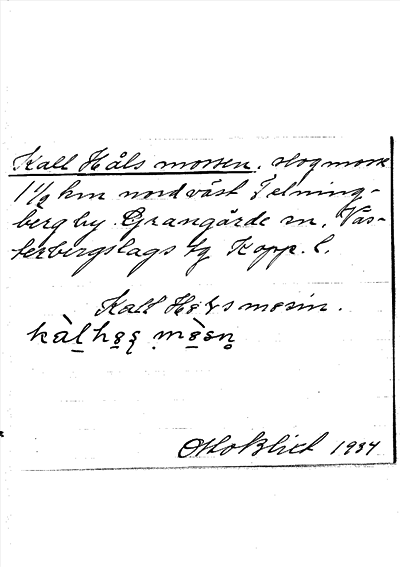 Kall Håls mossen. Slogmosse
1 1/2 km nordväst Telning-
berg by. Grangärde sn, Väs-
terbergslags tg Kopp. l.
Kall Hols mosin.
Otto Blixt 1934